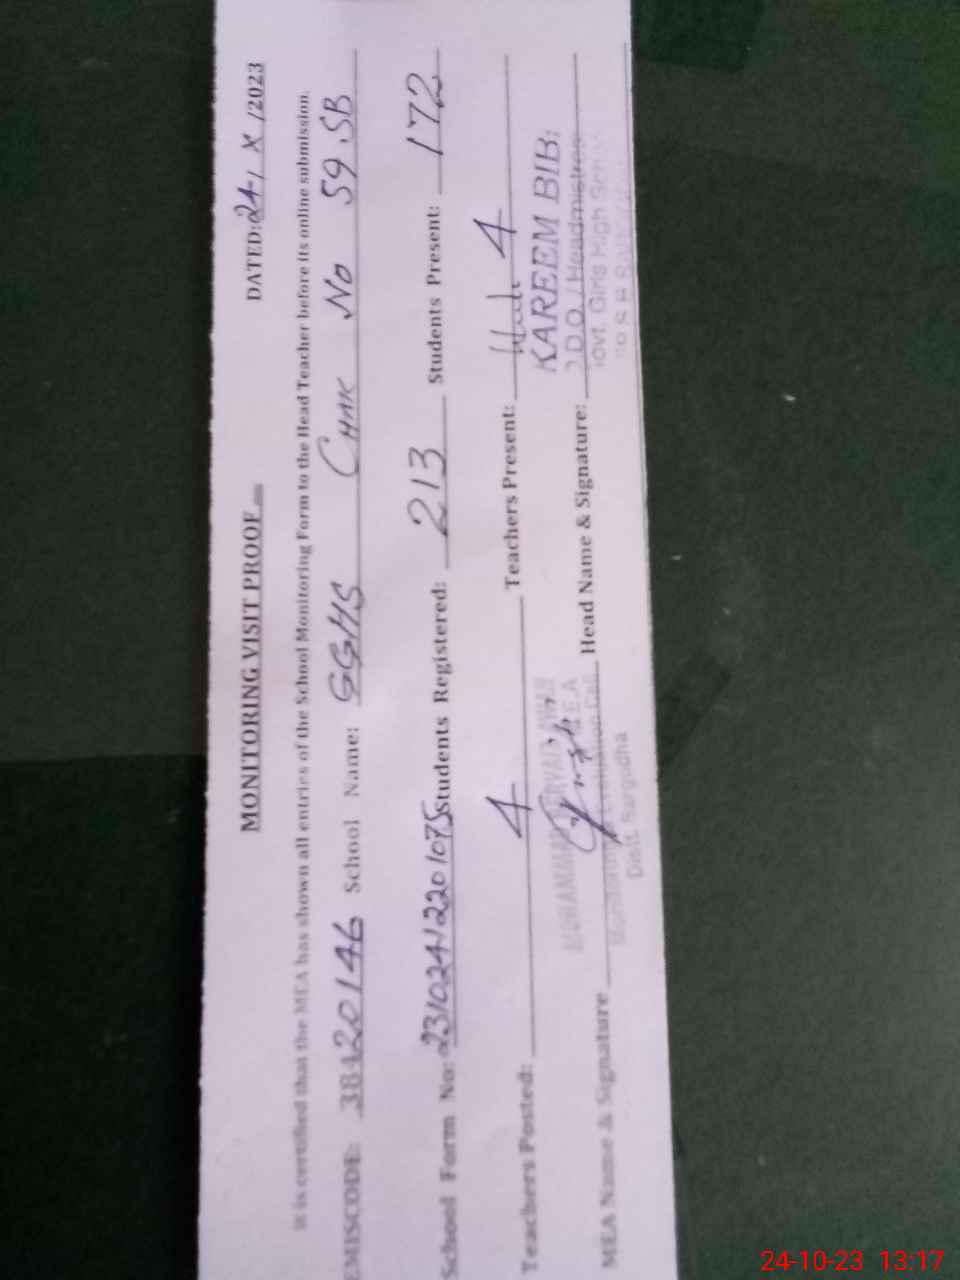 MONITORING VISIT PROOF DATED: 24 / X /2023
It is certified that the MEA has shown all entries of the School Monitoring Form to the Head Teacher before its online submission.
EMISCODE: 38420146 School Name: GGHS CHAK No 59.SB
School Form No: 231024122201075 Students Registered: 213 Students Present: 172
Teachers Posted: 4 Teachers Present: 4
KAREEM BIBI
MEA Name & Signature Head Name & Signature:
D.D.O / Headmistress
Govt. Girls High School
MUHAMMAD PERVAIZ AWAN
MEA
Distt. Sargodha
24-10-23 13:17